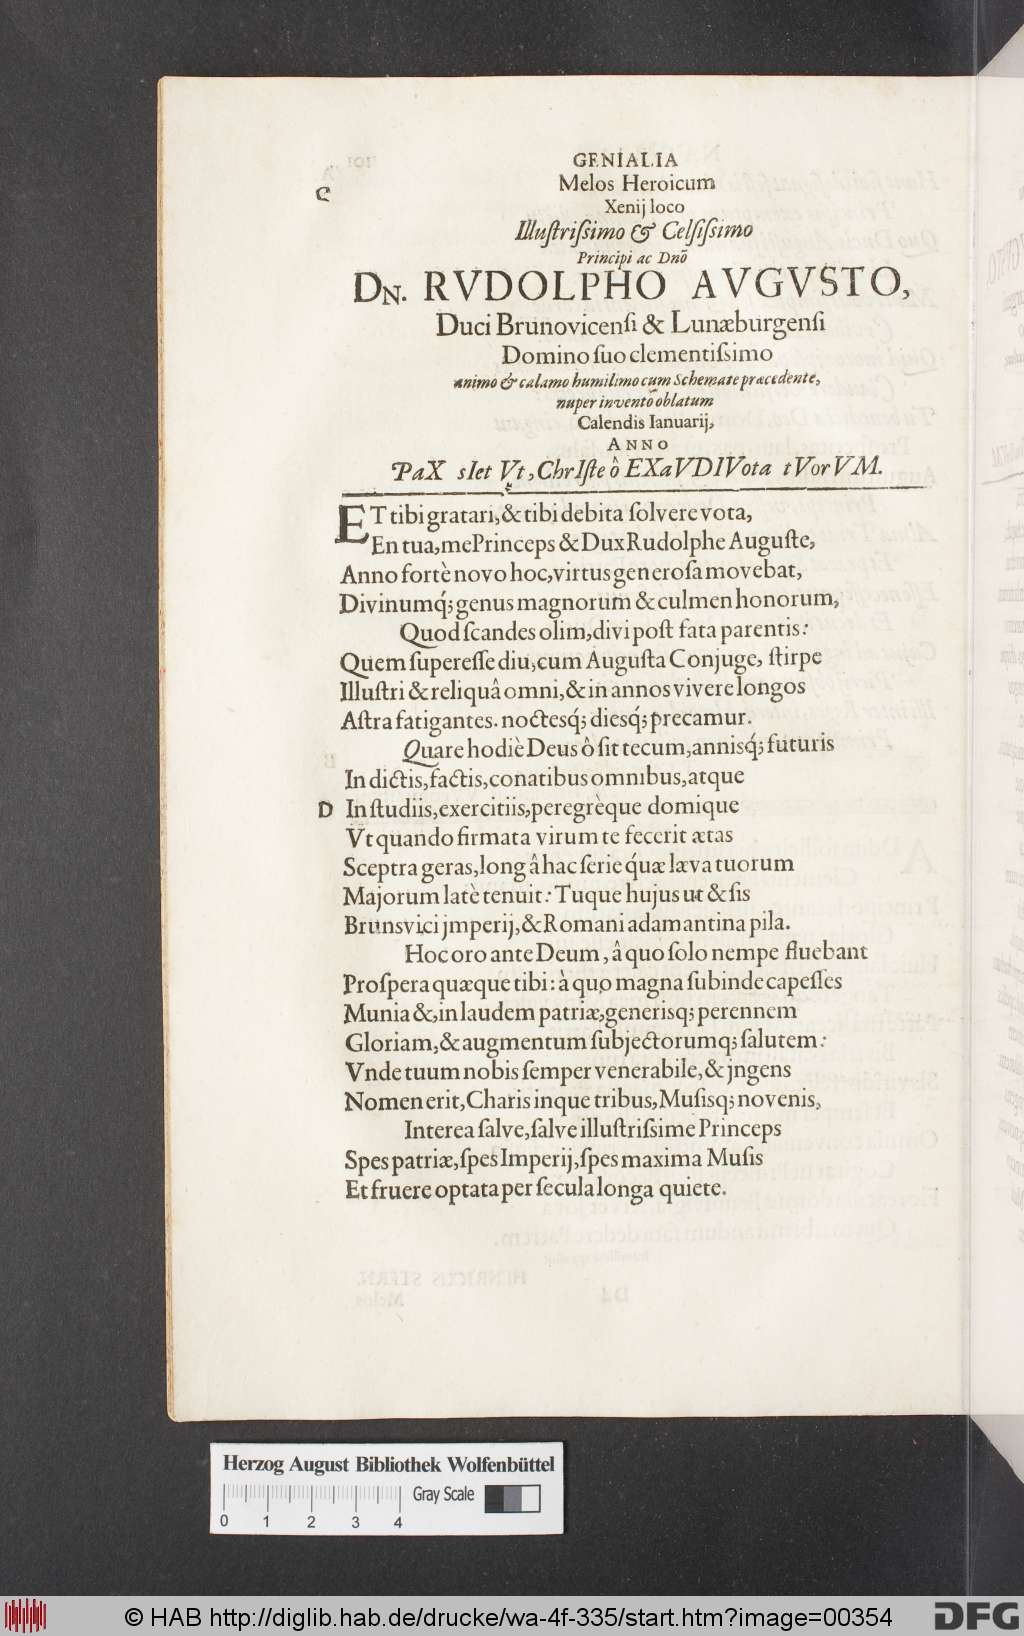 GENIALIA
C
Melos Heroicum
Xenij loco
Illuſtriſsimo & Celſiſsimo
Principi ac Dnō
DN. RVDOLPHO AVGVSTO,
Duci Brunovicenſi & Lunæburgenſi
Domino ſuo clementiſsimo
animo & calamo humilimo cum Schemate præcedente,
nuper inventō oblatum
Calendis Ianuarij,
ANNO
PaX sIet Vt, ChrIſte ô EXaVDIVota tVorVM.
ET tibi gratari, & tibi debita ſolvere vota,
En tua, me Princeps & Dux Rudolphe Auguſte,
Anno fortè novo hoc, virtus generoſa movebat,
Divinumq́; genus magnorum & culmen honorum,
Quod ſcandes olim, divi poſt fata parentis:
Quem ſupereſſe diu, cum Auguſta Conjuge, ſtirpe
Illuſtri & reliquâ omni, & in annos vivere longos
Aſtra fatigantes. noctesq́; diesq́; precamur.
Quare hodiè Deus ô ſit tecum, annisq́; futuris
In dictis, factis, conatibus omnibus, atque
D In ſtudiis, exercitiis, peregrèque domique
Vt quando firmata virum te fecerit ætas
Sceptra geras, longâ hac ſerie q́uæ læva tuorum
Majorum latè tenuit: Tuque hujus ut & ſis
Brunsvici jmperij, & Romani adamantina pila.
Hoc oro ante Deum, â quo ſolo nempe fluebant
Proſpera quæque tibi: à quo magna ſubinde capeſſes
Munia &, in laudem patriæ, generisq; perennem
Gloriam, & augmentum ſubjectorumq; ſalutem:
Vnde tuum nobis ſemper venerabile, & jngens
Nomen erit, Charisinque tribus, Muſisq; novenis,
Interea ſalve, ſalve illuſtriſsime Princeps
Spes patriæ, ſpes Imperij, ſpes maxima Muſis
Et fruere optata per ſecula longa quiete.
Herzog August Bibliothek Wolfenbüttel
Gray Scale
0 1 2 3 4
© HAB http://diglib.hab.de/drucke/wa-4f-335/start.htm?image=00354
DFG